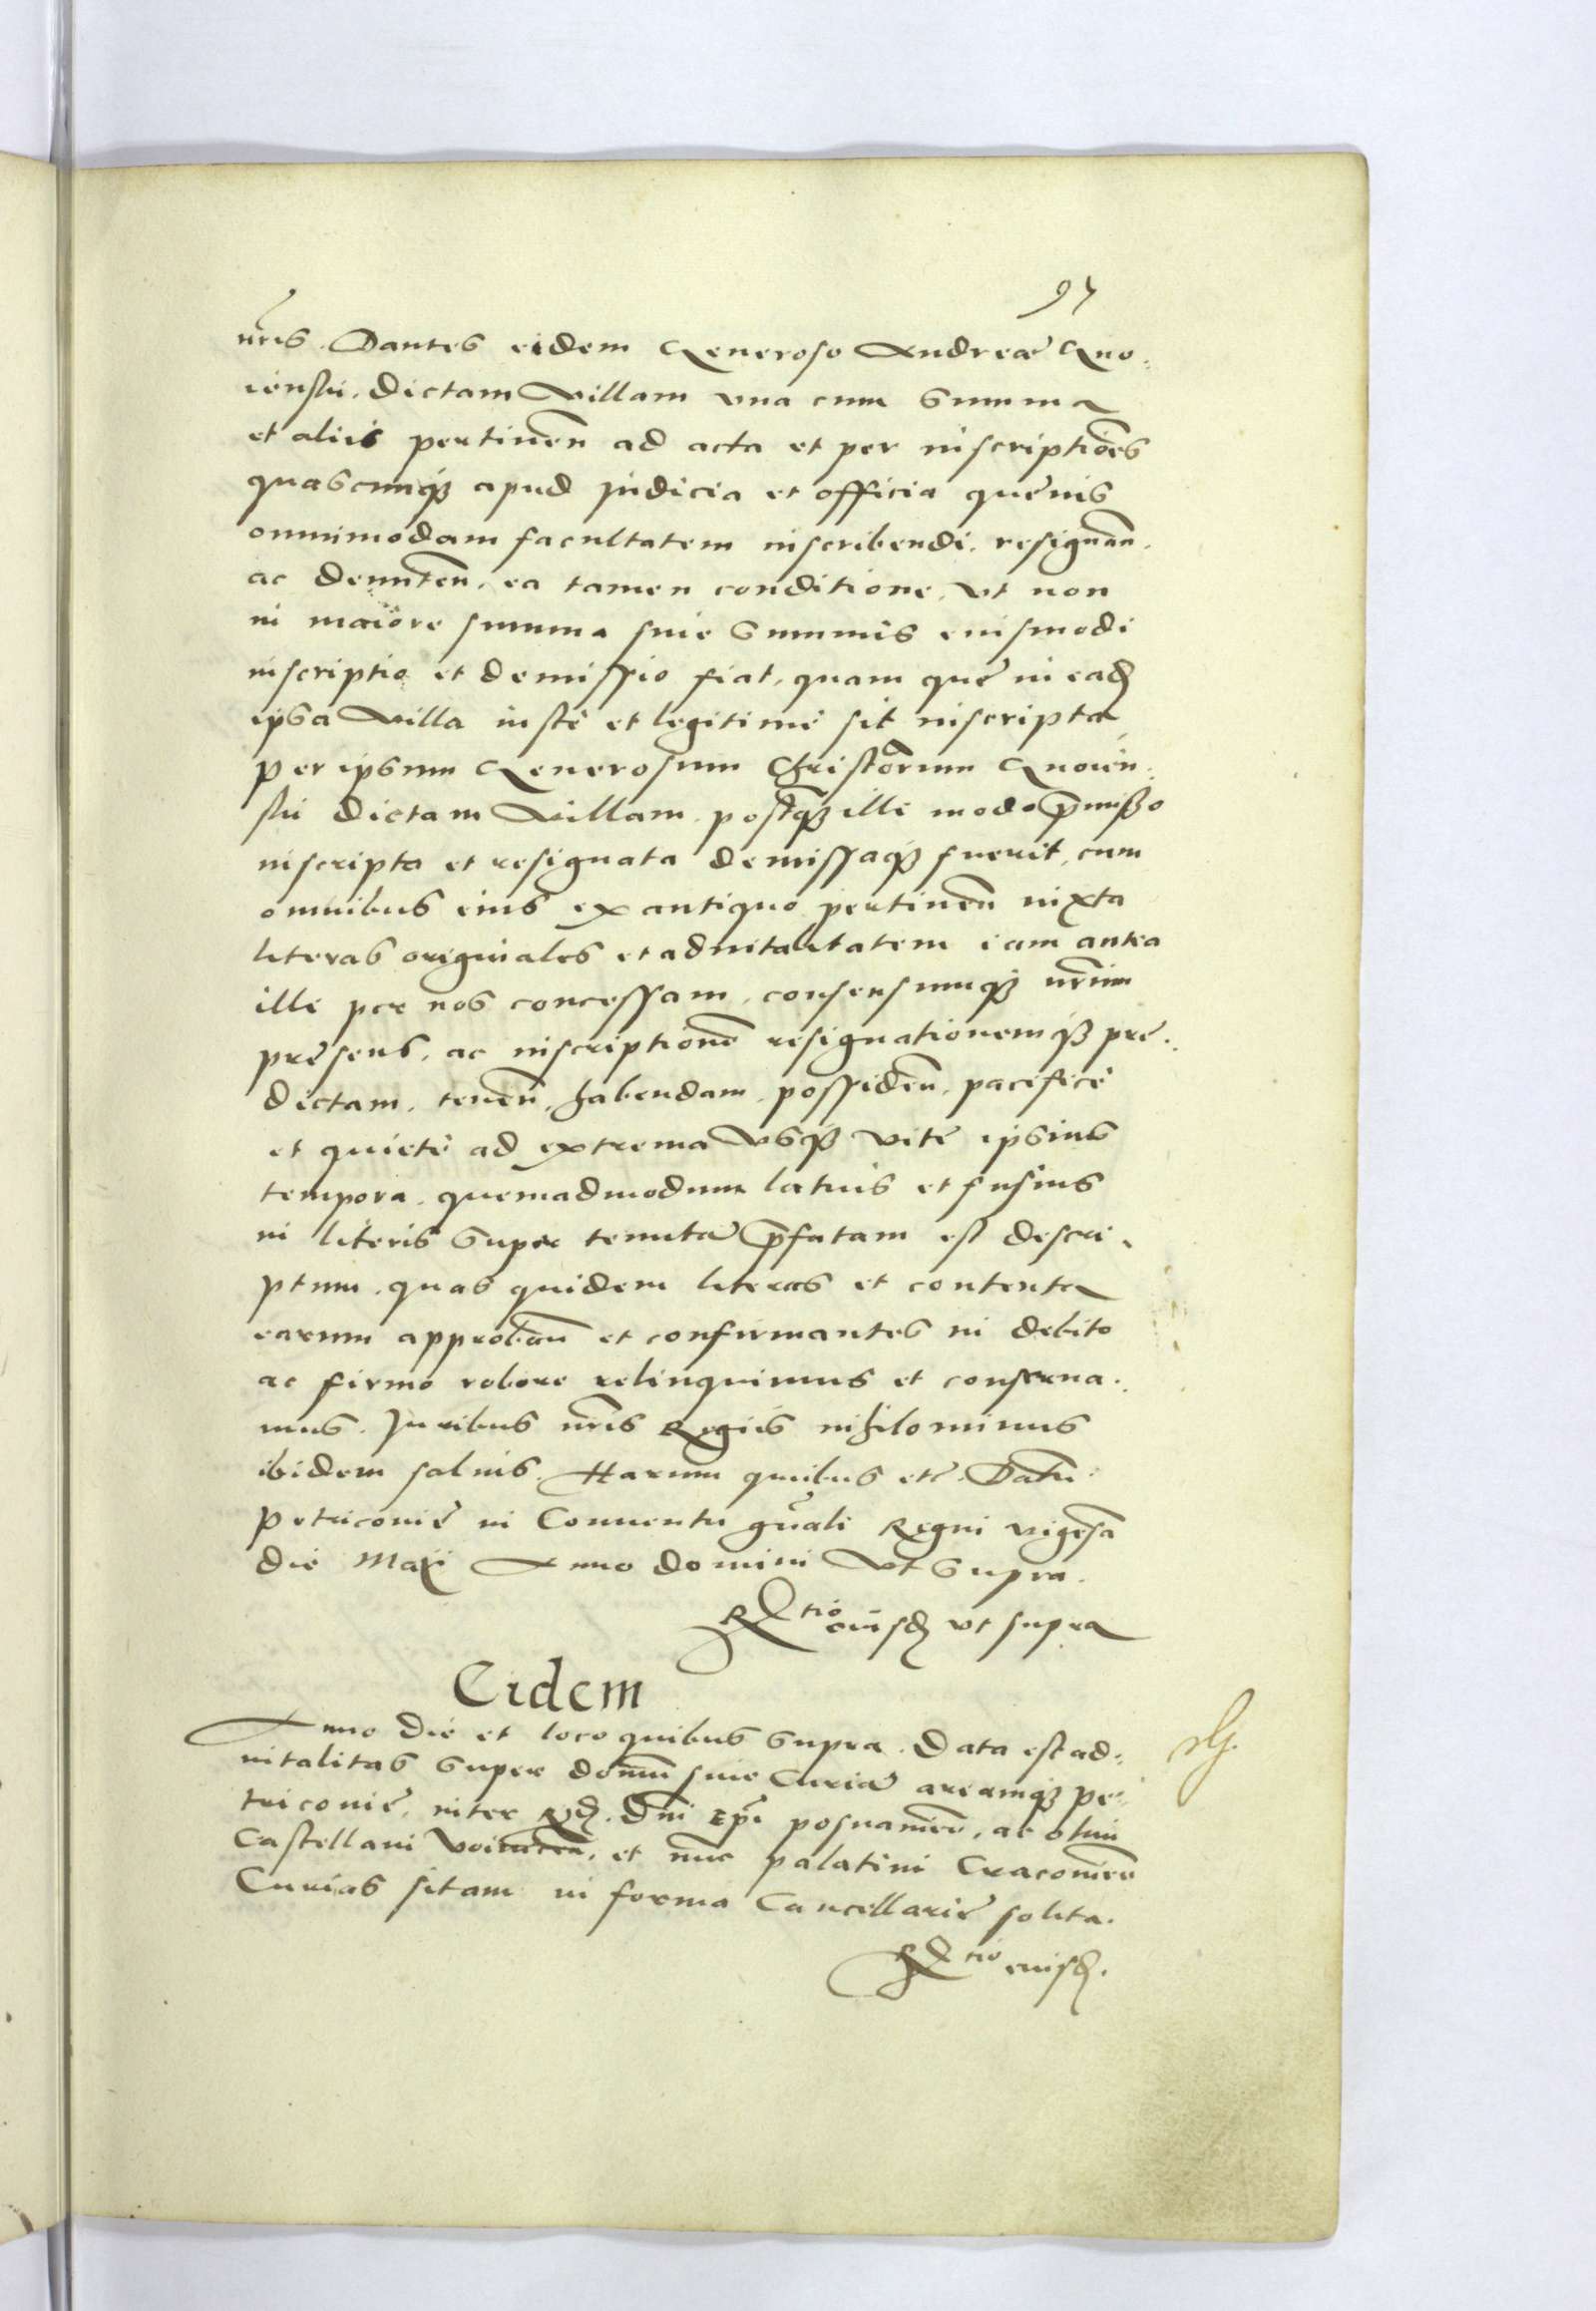 97
nris. Dantes eidem Generoso Andreae Gno-
ienski, dictam Villam una cum summa
et aliis pertinen ad acta et per inscriptiones
quascunque apud judicia et officia quevis
omnimodam facultatem inscribendi, resignan.
ac demitten, ea tamen conditione, ut non
in maiore summa sive summis eiusmodi
inscriptio et demissio fiat, quam que in ead
ipsa Villa iuste et legitime sit inscripta,
per ipsum Generosum Christorum Gnoien-
ski dictam Villam, postquam illi modo premisso
inscripta et resignata demissaque fuerit, cum
omnibus eius ex antiquo pertinen iuxta
literas originales et advitalitatem eam antea
illi per nos concessam, consensumque nrum
presens, ac inscriptione resignationemque pre-
dictam, tenen, habendam, possiden, pacifice
et quiete ad extrema usque vite ipsius
tempora, quemadmodum latius et fusius
in literis super tenuta prefatam est descri-
ptum, quas quidem literas et contenta
earum approban et confirmantes in debito
ac firmo robore relinquimus et conserva-
mus. Juribus nris Regiis nihilominus
ibidem salvis. Harum quibus etc. Datum
Petricovie in Conventu gnali Regni vigesa
die Maii Anno domini ut supra.
Rtio eiusd ut supra
Eidem
Anno die et loco quibus supra. Data est ad-
vitalitas super domum sive Curia areamque Pe-
tricovie, inter Rd. Dni Epi Posnanien, ac olim
Castellani Voinicen, et nunc palatini Cracovien
Curias sitam in forma Cancellarie solita.
Rtio eiusd.